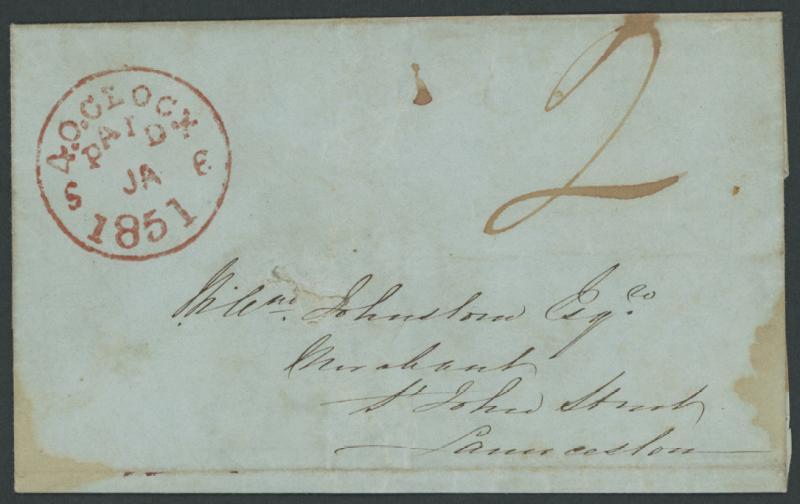 4.O.CLOCK
PAID
S JA E
1851
2
Johnstone Esqre
Merchant
St John Street
Launceston